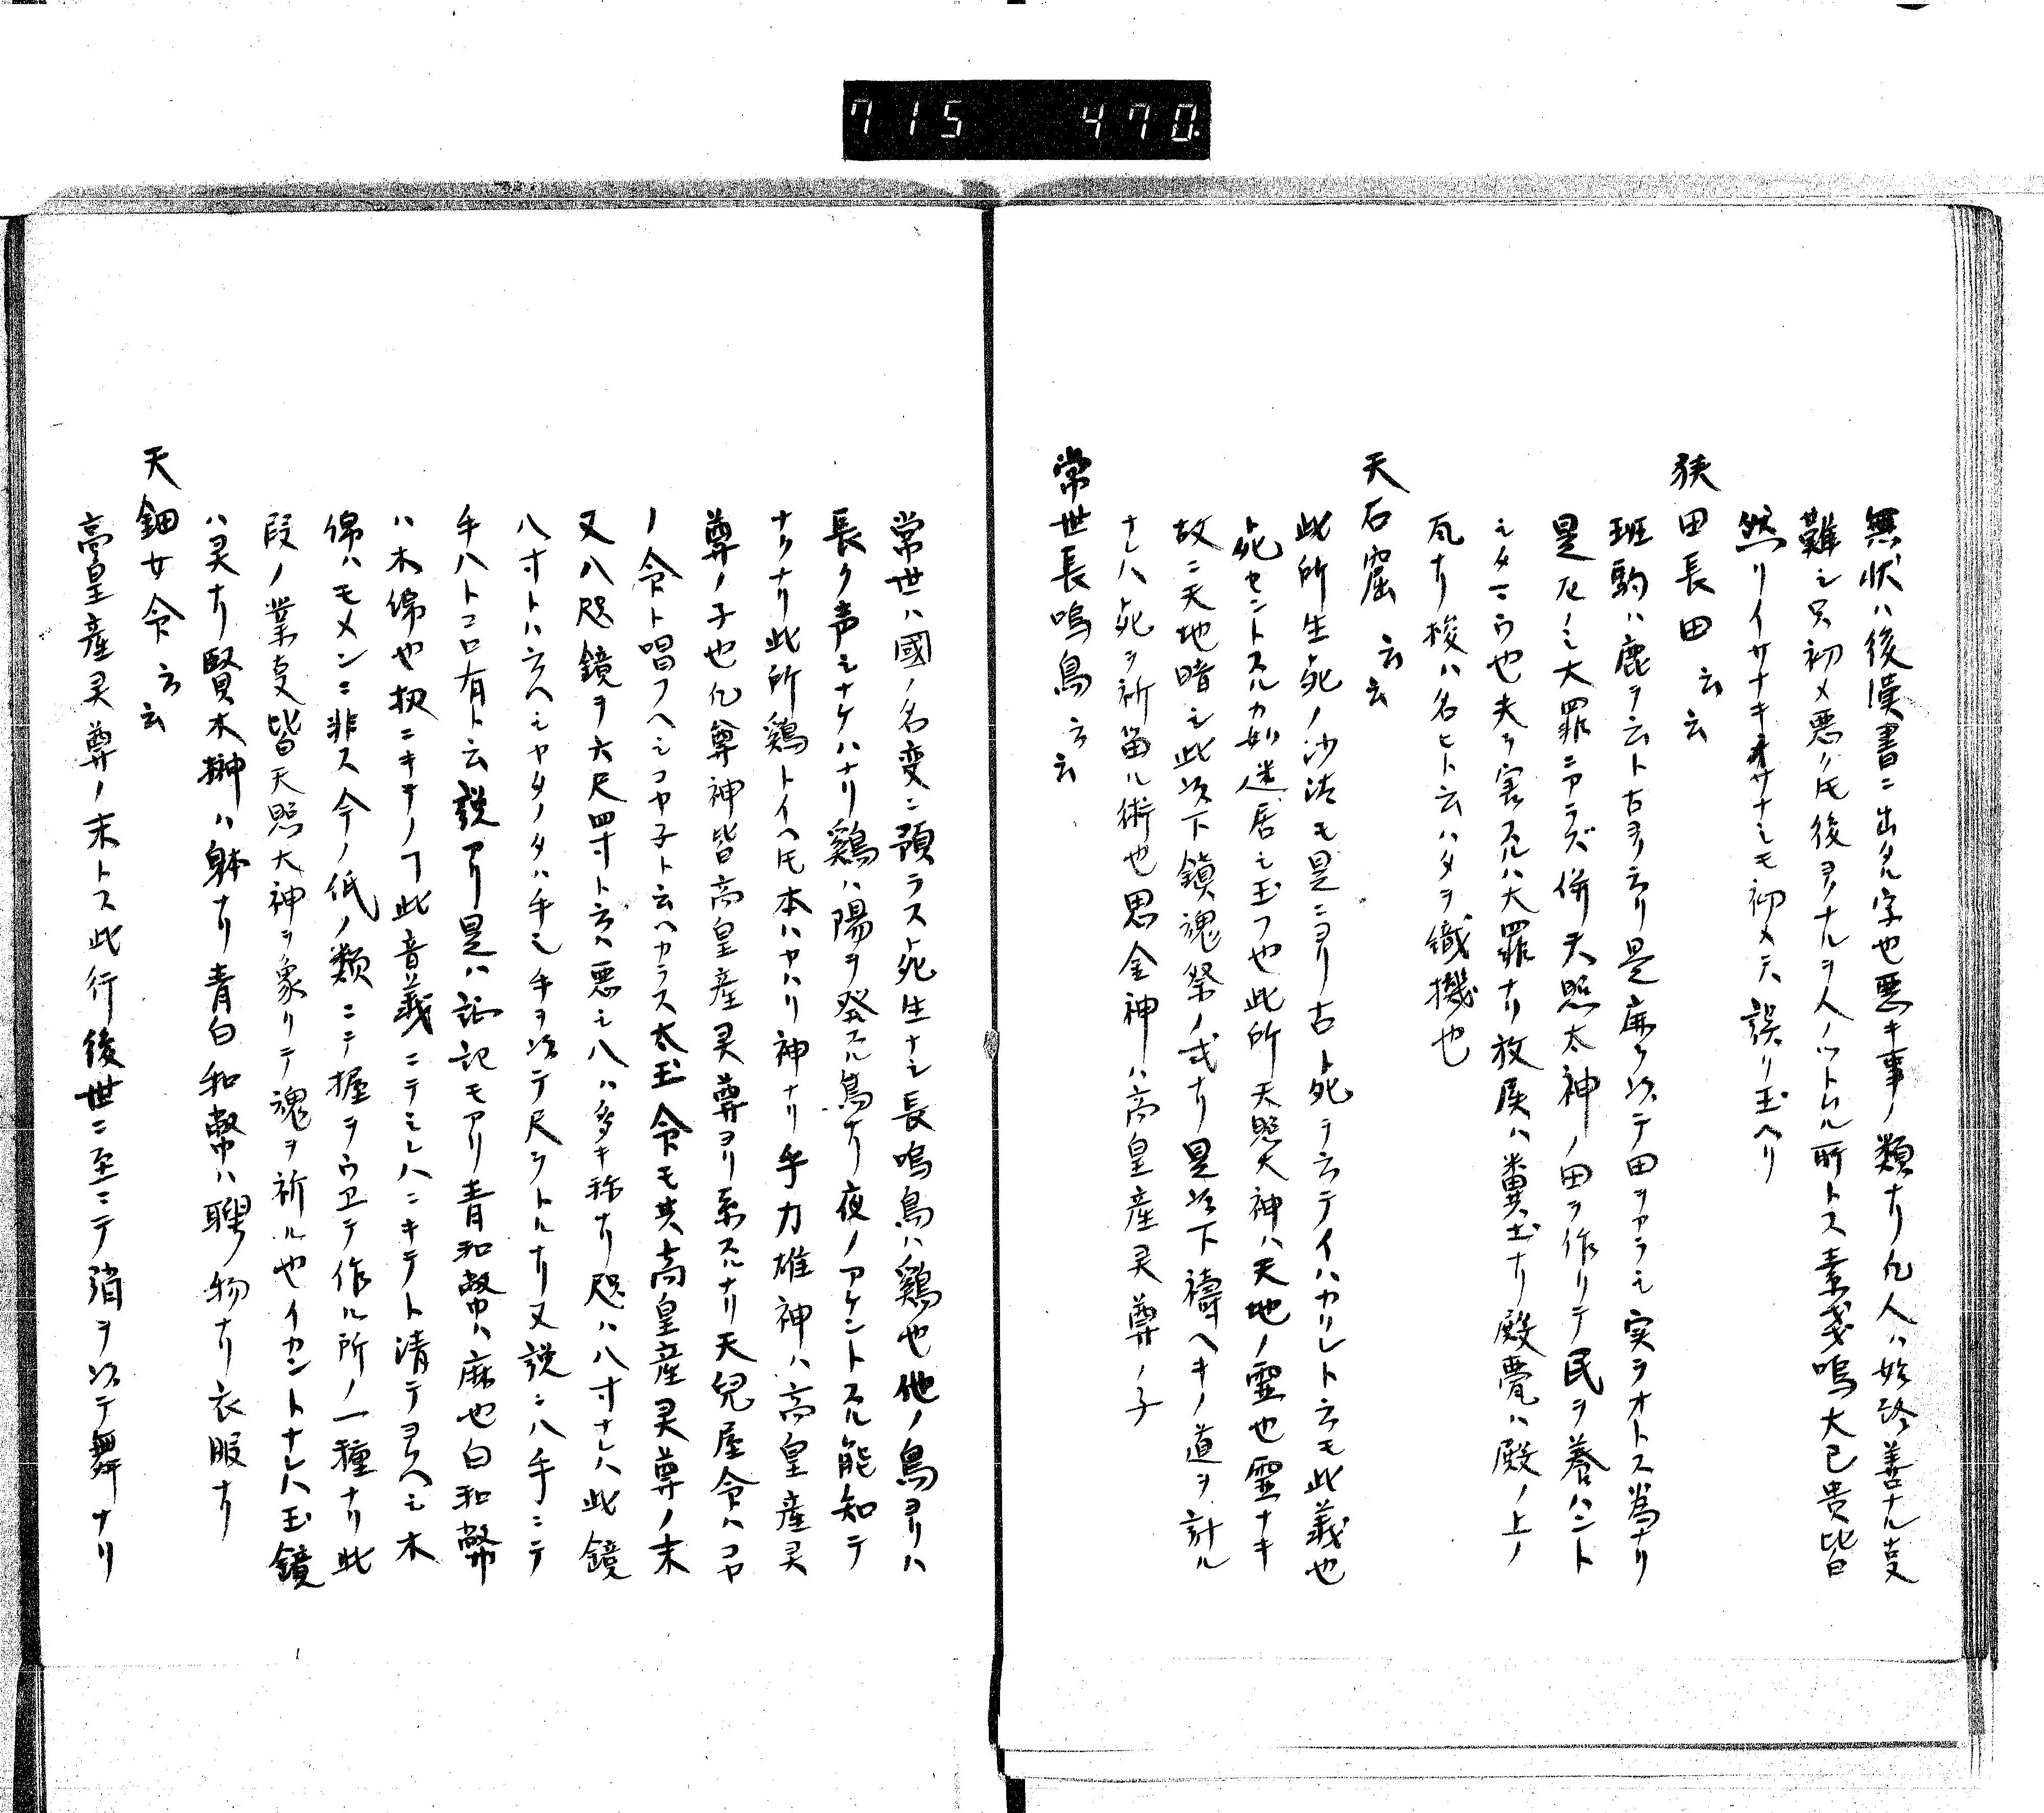 715 470.
無状ハ後漢書ニ出タル字也悪キ事ノ類ナリ凡人ハ始終善ナル支
難シ只初メ悪ク𪜈後ヨクナルヲ人ノツトムル所トス素戔嗚大己貴皆
然リイサナキイサナミモ初メテ誤リ玉ヘリ
狭田長田 云云
班駒ハ鹿ヲ云ト古ヨリ云リ是鹿ヲ以テ田ヲアラシ実ヲオトス為ナリ
是凡ノミ大罪ニアラズ併天照太神ノ田ヲ作リテ民ヲ養ハント
シタマウ也夫ヲ害スルハ大罪ナリ放屎ハ糞土ナリ殿甍ハ殿ノ上ノ
瓦ナリ梭ハ名ヒト云ハタヲ織機也
天石窟 云云
此所生死ノ沙法モ是ニヨリ古ト死ヲ云テイハカクレト云モ此義也
ト死セントスルカ如迷居シ玉フ也此所天照大神ハ天地ノ霊也霊ナキ
故ニ天地暗シ此以下鎮魂祭ノ弐ナリ是以下祷ヘキノ道ヲ計ル
ナレハ死ヲ祈留ル術也思金神ハ高皇産灵尊ノ子
常世長鳴鳥 云云
常世ハ國ノ名変ニ預ラス死生ナシ長鳴鳥ハ鶏也他ノ鳥ヨリハ
長ク声シナケハナリ鶏ハ陽ヲ発スル鳥ナリ夜ノアケントスル能知テ
ナクナリ此所鶏トイヘ𪜈本ハヤハリ神ナリ手力雄神ハ高皇産灵
尊ノ子也凡尊神皆高皇産灵尊ヨリ系スルナリ天児屋命ハコヤ
ノ命ト唱フヘシコヤ子ト云ヘカラス太玉命モ其高皇産灵尊ノ末
又八咫鏡ヲ六尺四寸ト云ハ悪シ八ハ多キ称ナリ咫ハ八寸ナレハ此鏡
八寸トハ云ヘシヤタノタハ手也手ヲ以テ尺ヲトルナリ又説ニ八手ニテ
手ハトコロ有ト云説アリ是ハ証記モアリ青和幣ハ麻也白和幣
ハ木綿也扨ニキテノヿ此音義ニテミレハニキテト清テヨムヘシ木
綿ハモメンニ非ス今ノ低ノ類ニテ握ヲウエテ作ル所ノ一種ナリ此
段ノ業支皆天照大神ヲ象リテ魂ヲ祈ル也イカントナレハ玉鏡
ハ灵ナリ賢木榊ハ躰ナリ青白和幣ハ聘物ナリ衣服ナリ
天鈿女命 云云
高皇産灵尊ノ末トス此行後世ニ至ニテ猾ヲ以テ舞ナリ